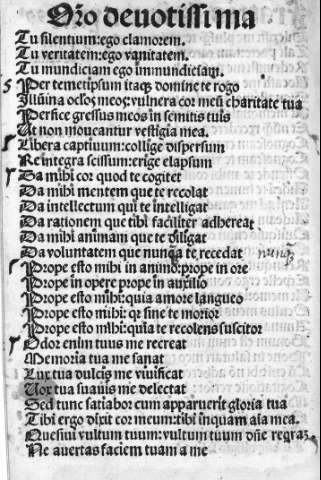 Orõ deuotissi ma
Tu silentium: ego clamorem.
Tu veritatem: ego vanitatem.
Tu mundiciam ego immundiciam.
Per temetipsum itaqȝ domine te rogo
Illumina oc̃los meos: vulnera cor meũ charitate tua
Perfice gressus meos in semitis tuis
Ut non moueantur vestigia mea.
Libera captiuum: collige dispersum
Reintegra scissum: erige elapsum
Da mihi cor quod te cogitet
Da mihi mentem que te recolat
Da intellectum qui te intelligat
Da rationem que tibi faciliter adhereat
Da mihi animam que te diligat
Da voluntatem que nunq̃ a te recedat
Prope esto mihi in animo: prope in ore
Prope in opere prope in auxilio
Prope esto mihi: quia amore langueo
Prope esto mihi: qr sine te morior
Prope esto mihi: quia te recolens suscitor
Odor enim tuus me recreat
Memoria tua me sanat
Lux tua dulcis me viuificat
Uox tua suauis me delectat
Sed tunc satiabor cum apparuerit gloria tua
Tibi ergo dixit cor meum: tibi inquam aĩa mea.
Quesiui vultum tuum: vultum tuum dñe reqrã
Ne auertas faciem tuam a me